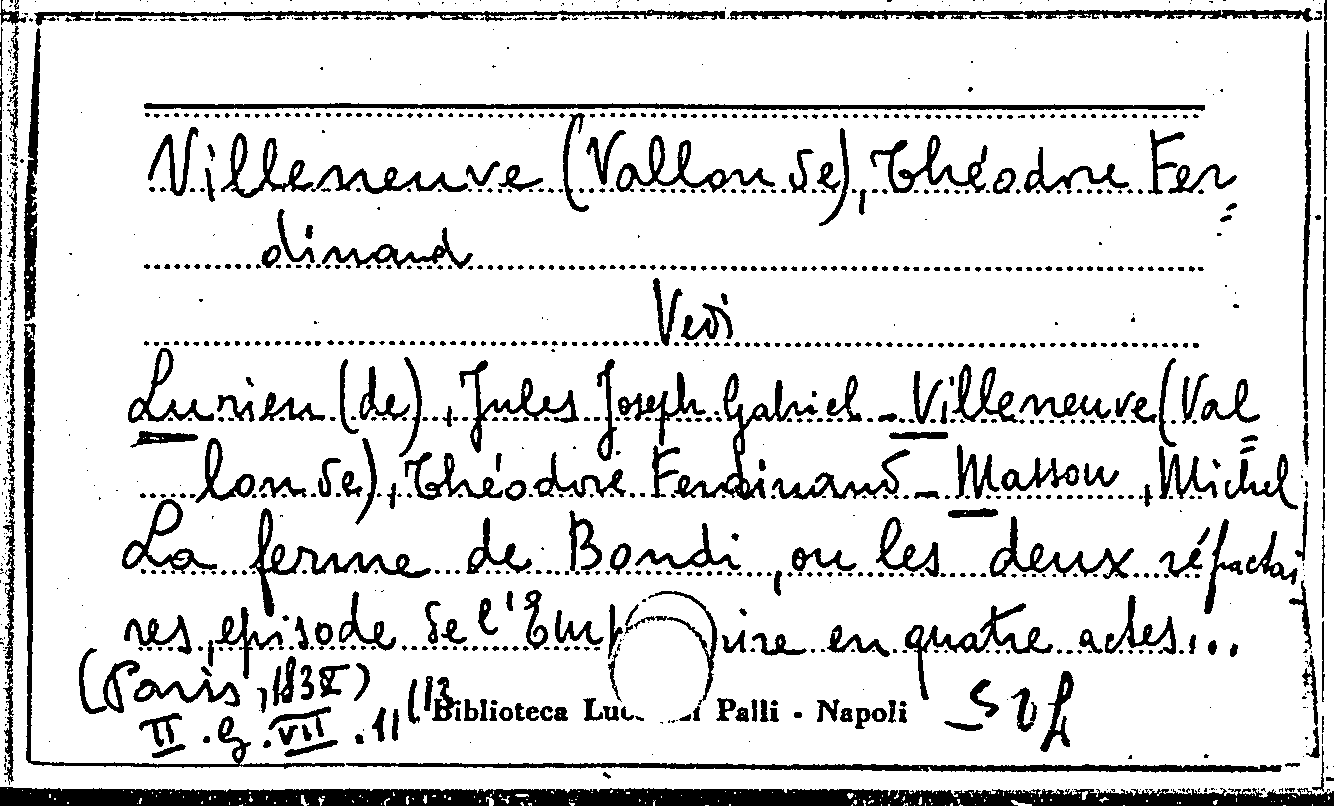 Villeneuve (Vallon de), Théodore Fer=
dinand
Vedi
Lurieu (de), Jules Joseph Gabriel - Villeneuve (Val=
lon de), Théodore Ferdinand - Masson, Michel
La ferme de Bondi, ou les deux réfractai
res, episode de l'Emp ire en quatre actes...
(Paris, 183
II. G. VII. 11(13
Biblioteca Luc i Palli - Napoli